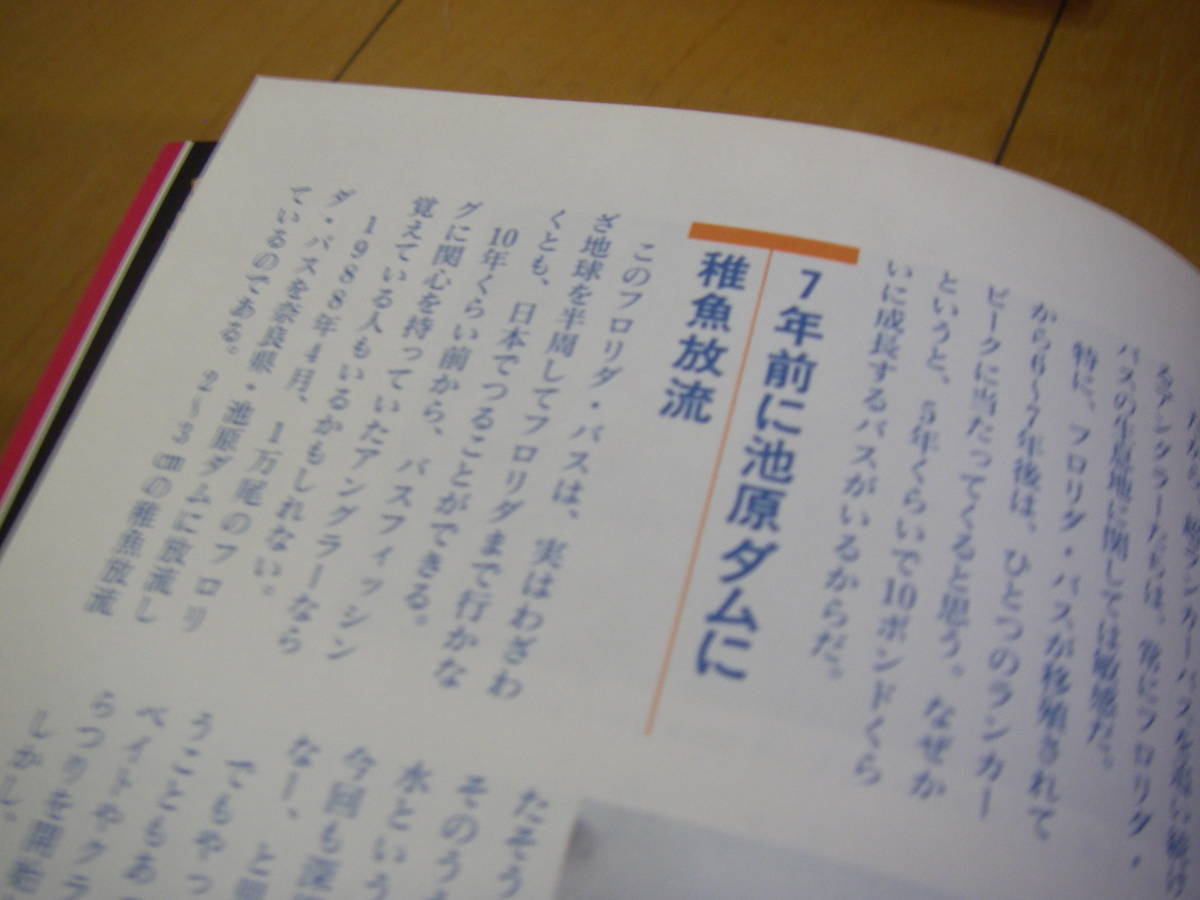 バスの生息地に関しては敏感だ。
特に、フロリダ・バスが移殖されて
から6〜7年後は、ひとつのランカー
ピークに当たってくると思う。なぜか
というと、5年くらいで10ポンドくら
いに成長するバスがいるからだ。
7年前に池原ダムに
稚魚放流
このフロリダ・バスは、実はわざわ
ざ地球を半周してフロリダまで行かな
くとも、日本でつることができる。
10年くらい前から、バスフィッシン
グに関心を持っていたアングラーなら
覚えている人もいるかもしれない。
1988年4月、1万尾のフロリ
ダ・バスを奈良県・池原ダムに放流し
ているのである。2〜3cmの稚魚放流
たそう
そのうち
水という
今回も深
なー、と
でもやっ
うこともあ
ベイトやクラ
らつりを開始
しかし。